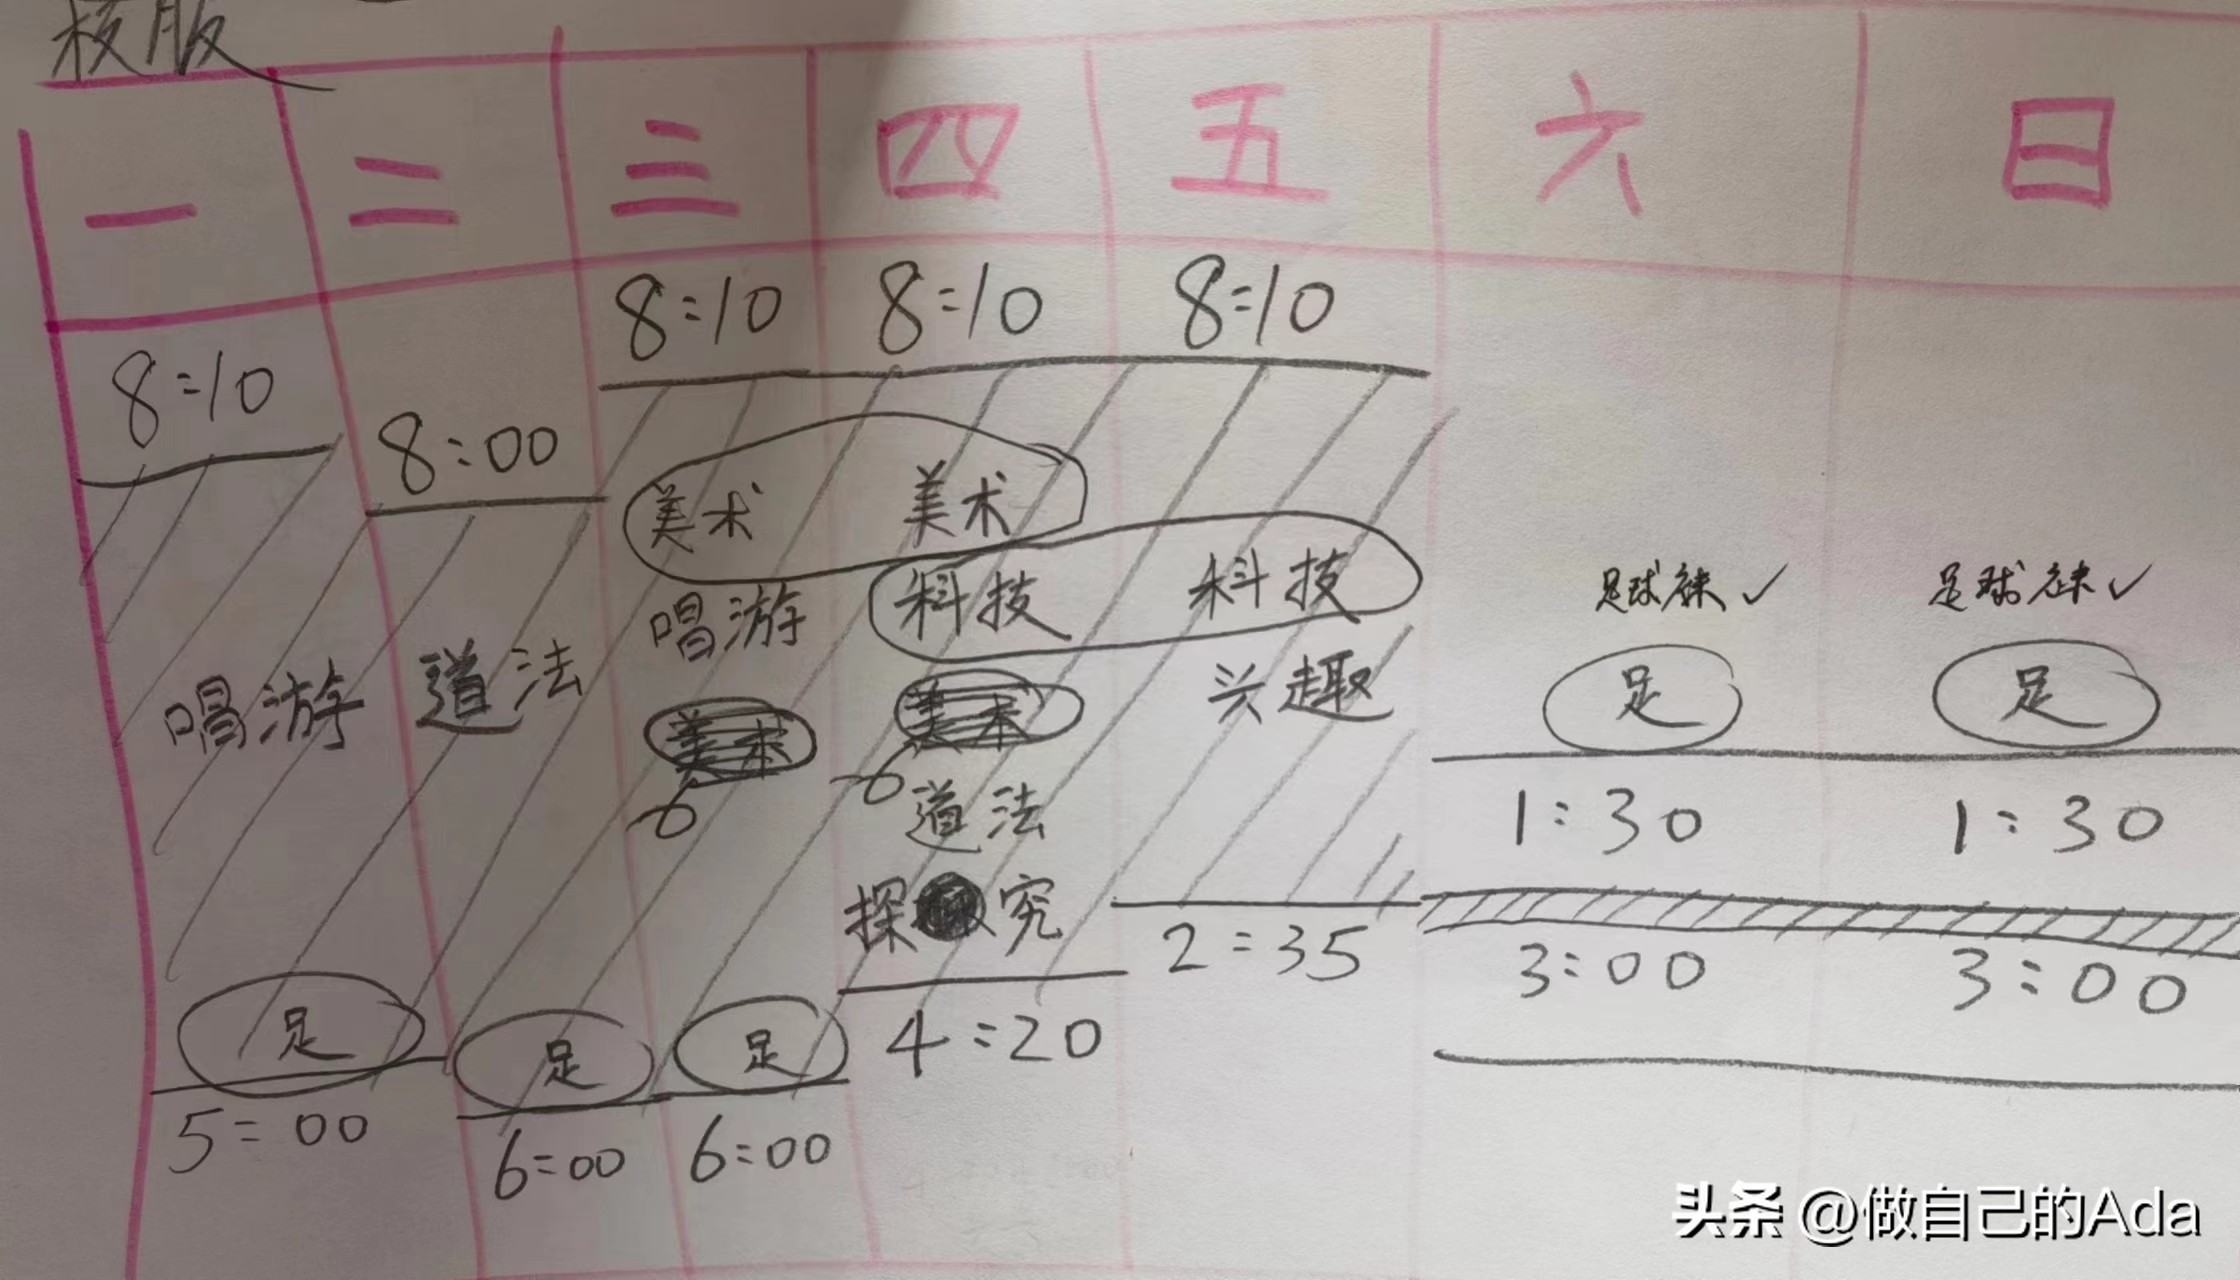 校服
一 二 三 四 五 六 日
8:10 8:00 8:10 8:10 8:10
美术 美术
科技 科技
唱游 道法 唱游
美术 美术
兴趣
道法
探究
足球袜✓ 足球袜✓
足 足
1:30 1:30
3:00 3:00
足 足 足
5:00 6:00 6:00 4:20 2:35
头条 @做自己的Ada